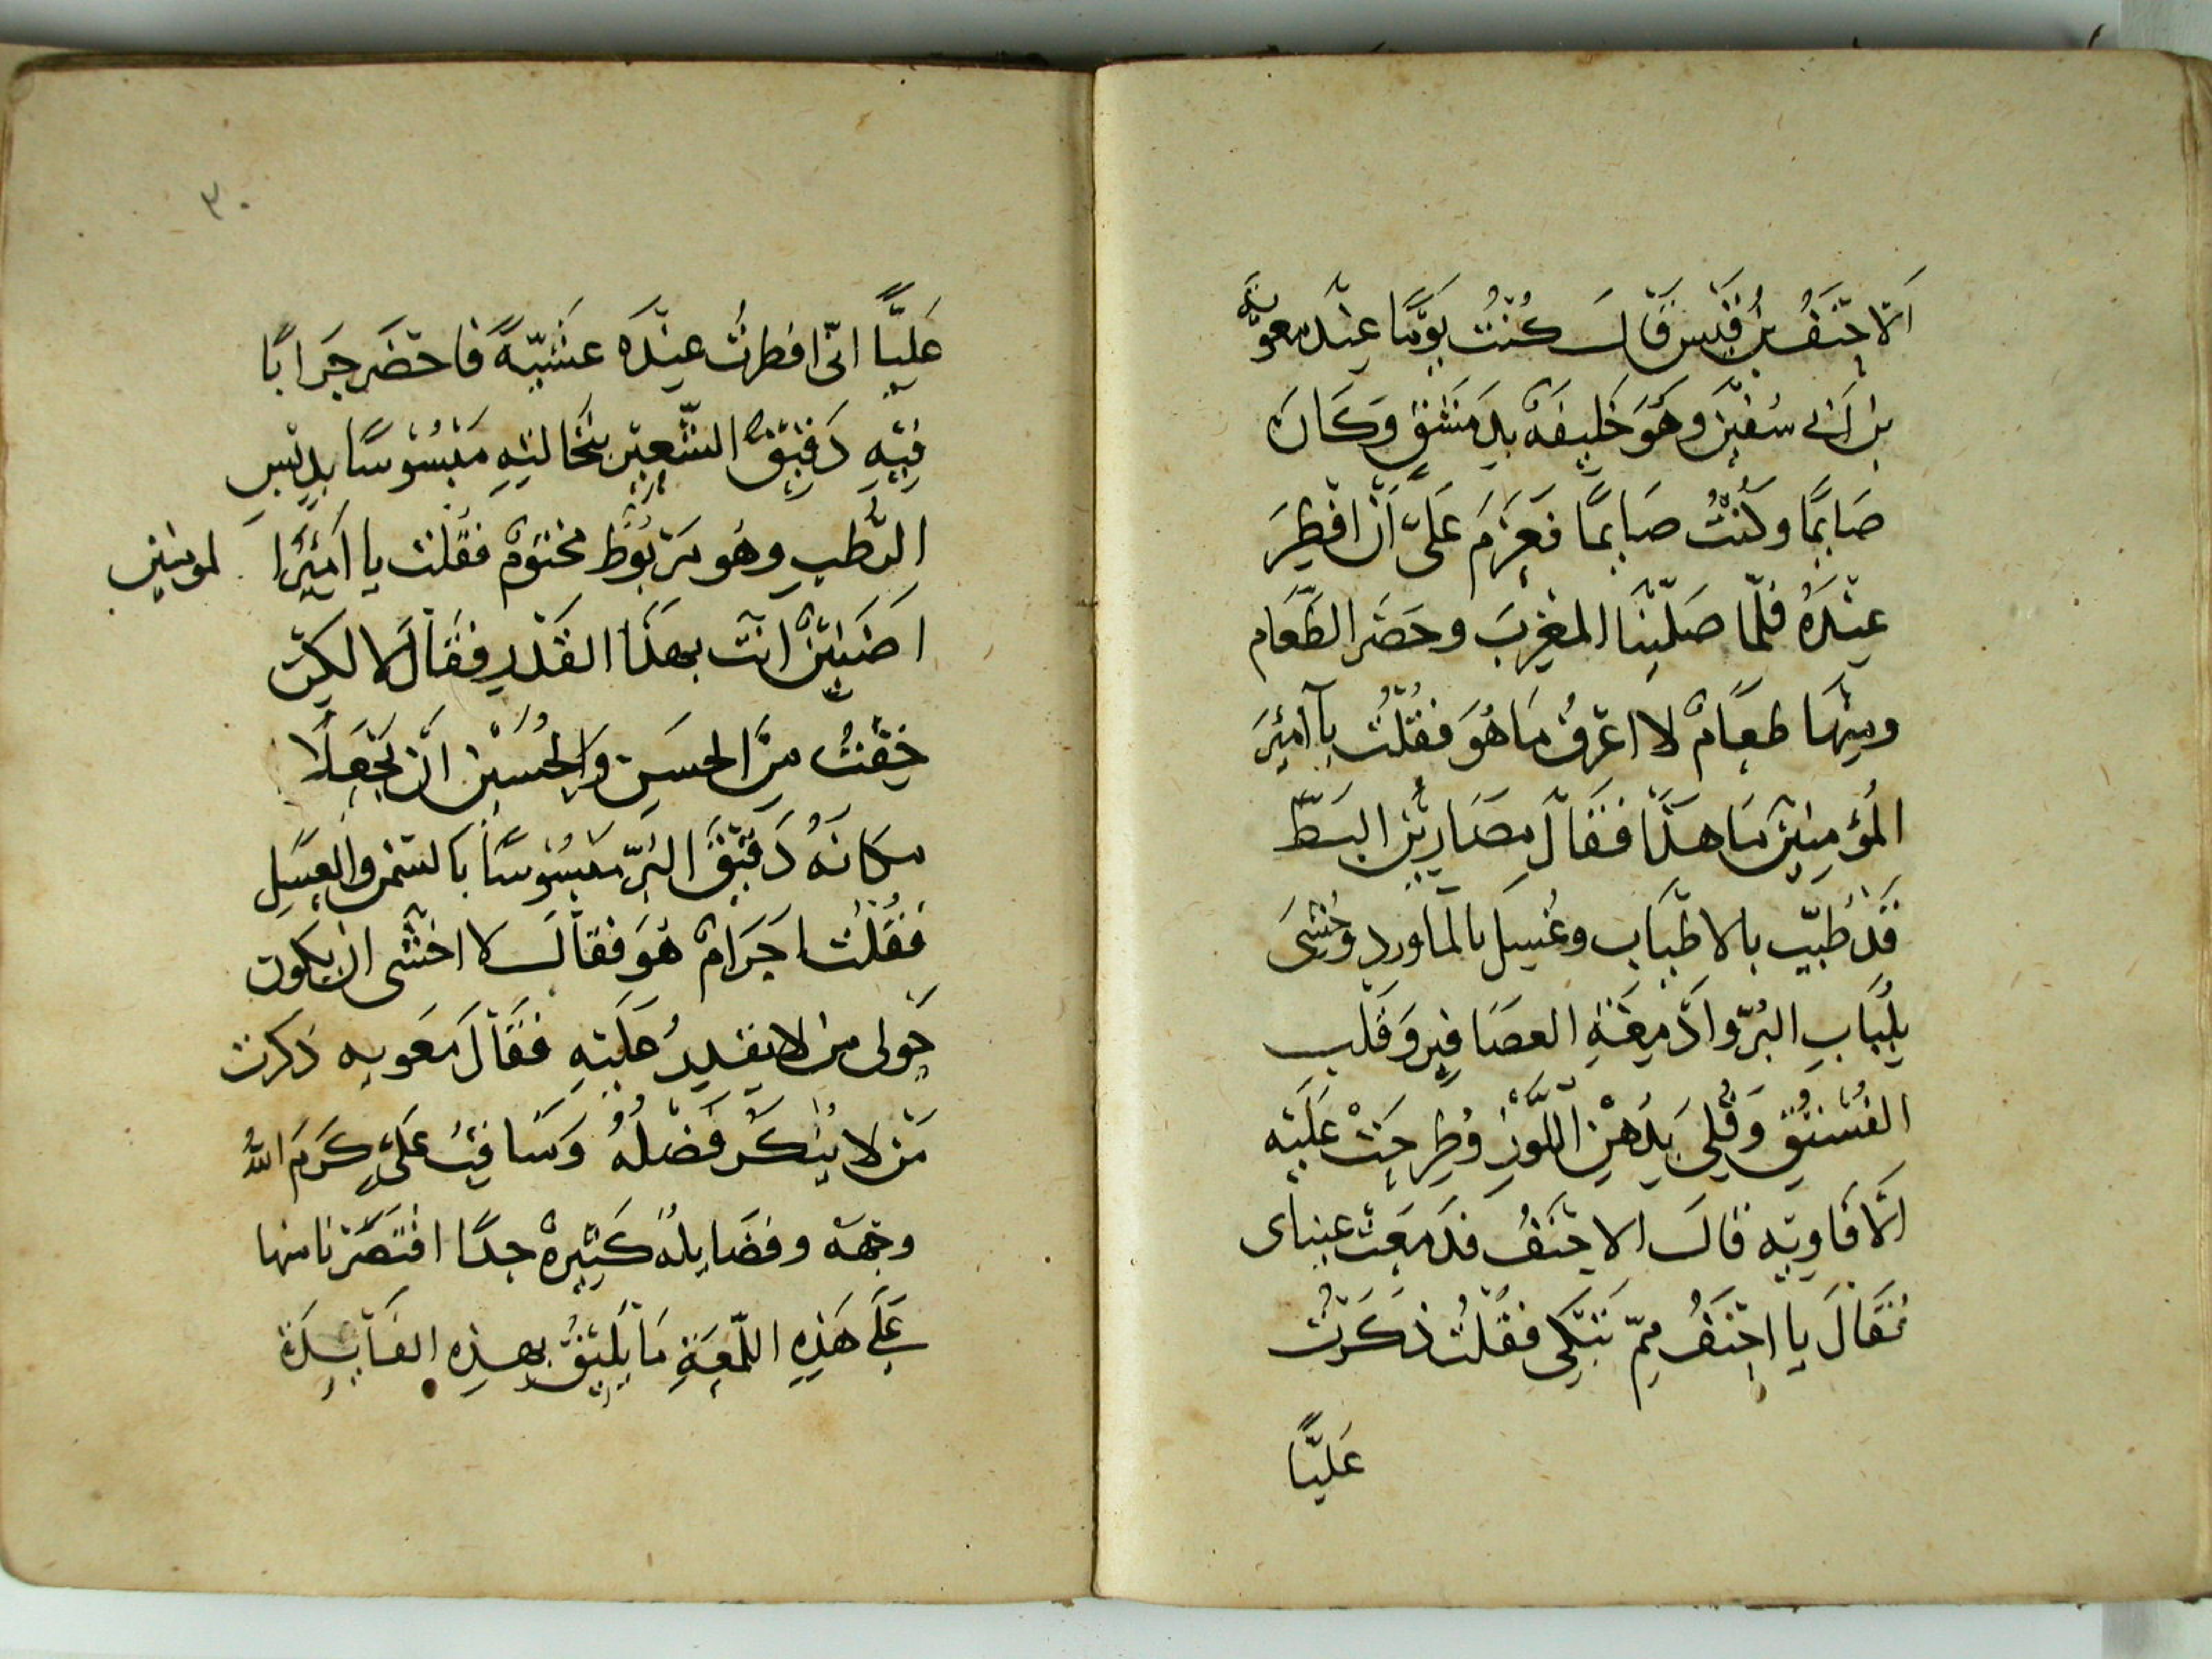 اَلاحْنَفُ بنُ قَيْس قَالَ كُنْتُ يَوْمًا عِنْدَ معوية
بن اَبى سفيٰن وهُوَ خَلِيفَةٌ بِدِمَشْق وَكَانَ
صَايمًا وكُنْتُ صَايمًا فَعَزَمَ عَلَىَّ اَنْ افْطِرَ
عِنْدَهُ فلمّا صَلّيْنَا المغْرِبَ وحَضَر الطَّعَام
ومِنْهَا طعَامٌ لا اعْرِفُ مَا هُوَ فَقُلْتُ يآ اَمِيْرَ
المُؤمِنِيْن مَا هٰذَا فَقَالَ مصَارِيْن البَطّ
قَدْ طُيّبَ بالاطْيَاب وغُسِلَ بالمآورد وحُشِىَ
بِلُبَابِ البُرّ وَادْمِغَةِ العصَافِير وَقلب
الفُسْتُق وَقُلِىَ بِدُهْنِ اللَّوْزِ وَطُرِحَتْ عَلَيْه
اَلافَاويه قَالَ الاحْنَفُ فَدمَعَتْ عيناى
فَقَالَ يا احْنَفُ مِمّ تَبْكِى فقُلتُ ذَكَرْتُ
عَليًّا
٣٠
عَلِيًّا انّى افطرتُ عِنْدَه عَشِيّةً فَاحْضَر جَرَابًا
فِيْهِ دَقِيْقُ الشّعِيْر بنخَالتِهِ مَبْسُوْسًا بدِبْسِ
الرُّطبِ وهُو مَرْبُوْطٌ مَختوْمٌ فقُلت يا اَمِيْرَ ا لمومنين
اضَنِيْنٌ انْتَ بهٰذَا القَدْرِ فَقَالَ لا لكِنْ
خِفْتُ مِنَ الحسَنِ وَالحُسَيْنِ اَنْ يَجْعَلَا
مكَانَهُ دَقِيْقَ البُرّ مبْسُوْسًا بالسّمْن والعَسَلِ
فَقُلْتُ احَرَامٌ هُوَ فقَالَ لا اخْشَى ان يكون
حَولى من لا يقدِرُ عَلَيْهِ فَقَالَ مَعوية ذكرت
مَنْ لا يُنْكَرُ فَضْلُهُ وَمَنَاقِبُ عَلىٍّ كَرَمَ اللهُ
وجْهَهُ وفضَايلُهُ كَثِيْرةٌ جدًا اقْتَصَرْنا منها
عَلَى هَذِهِ اللّمْعَةِ مَا يَلِيْقُ بِهذِهِ الفَآيدَة